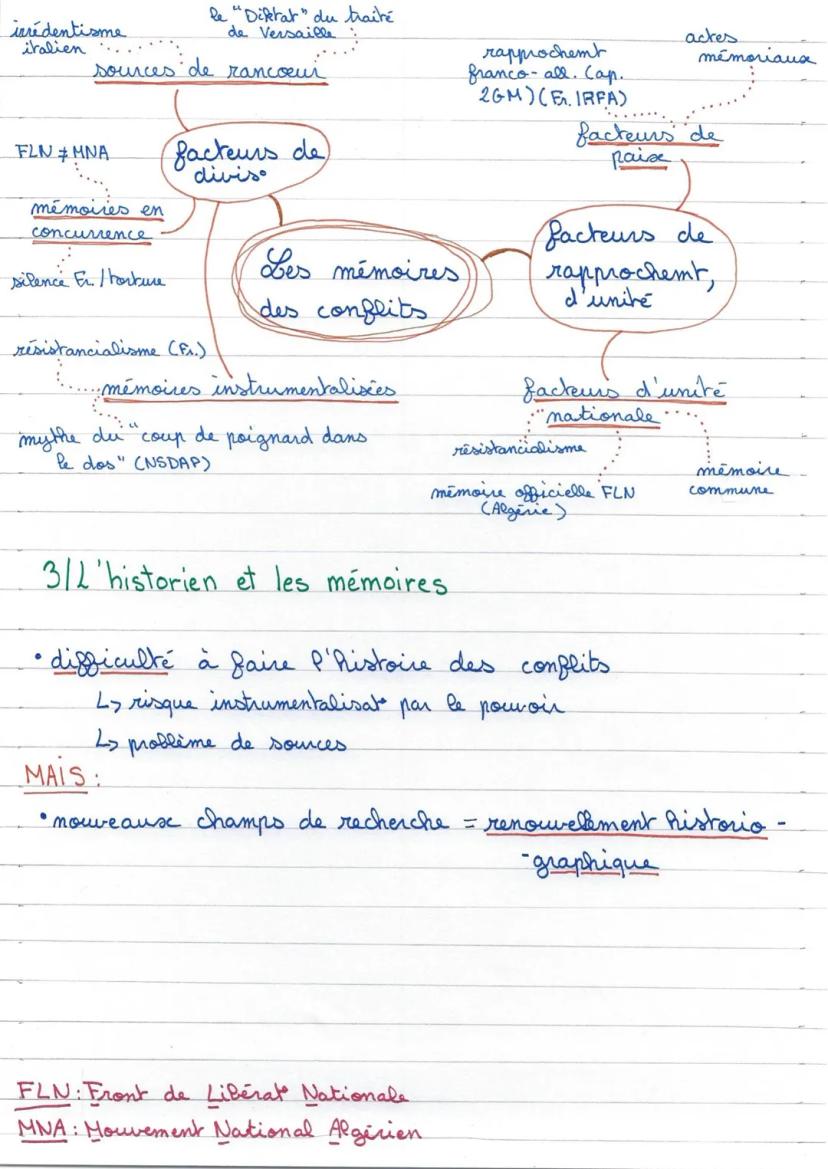 le "Diktat" du traité
de Versaille
irrédentisme
italien
sources de rancœur
actes
mémoriaux
rapprochemt
franco-all. (ap.
2GM) (Fr./RFA)
facteurs de
paix
FLN ≠ MNA
facteurs de
divis°
mémoires en
concurrence
silence Fr./torture
Les mémoires
des conflits
facteurs de
rapprochemt,
d'unité
résistancialisme (Fr.)
mémoires instrumentalisées
mythe du "coup de poignard dans
le dos" (NSDAP)
facteurs d'unité
nationale
résistancialisme
mémoire officielle FLN
(Algérie)
mémoire
commune
3/L'historien et les mémoires
• difficulté à faire l'histoire des conflits
↳ risque instrumentalisat° par le pouvoir
↳ problème de sources
MAIS :
• nouveaux champs de recherche = renouvellement historio-
-graphique
FLN : Front de Libérat° Nationale
MNA : Mouvement National Algérien